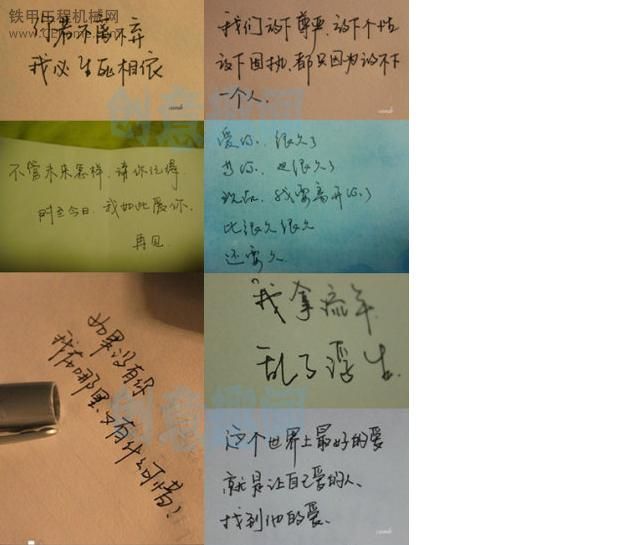 铁甲工程机械网
你若不离不弃
我必生死相依
我们放下尊严、放下个性
放下固执、都只因为放不下
一个人.
不管未来怎样，请你记得.
时至今日，我如此爱你.
再见.
爱你. 很久了
等你. 也很久了
现在. 我要离开你了
比很久很久
还要久
如果没有你
我在哪里又有什么可惜!
我拿流年.
乱了浮生.
这个世界上最好的爱
就是让自己爱的人、
找到他的爱.
创意趣闻
创意趣闻